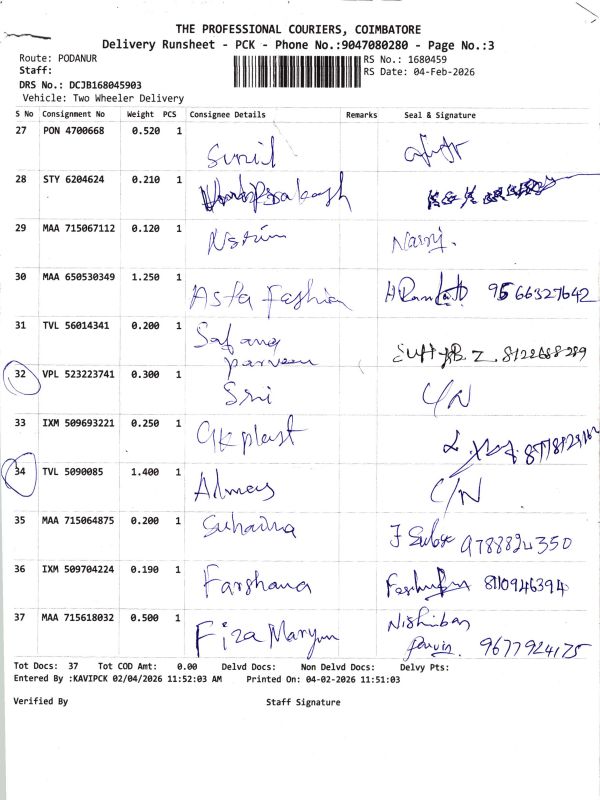 THE PROFESSIONAL COURIERS, COIMBATORE
Delivery Runsheet - PCK - Phone No.:9047080280 - Page No.:3
Route: PODANUR RS No.: 1680459
Staff: RS Date: 04-Feb-2026
DRS No.: DCJB168045903
Vehicle: Two Wheeler Delivery
S No Consignment No Weight PCS Consignee Details Remarks Seal & Signature
27 PON 4700668 0.520 1 Sunil
28 STY 6204624 0.210 1
29 MAA 715067112 0.120 1
30 MAA 650530349 1.250 1 Asfa Fashion 9566327642
31 TVL 56014341 0.200 1 Safana
parveen
32 VPL 523223741 0.300 1 Sri C/N
33 IXM 509693221 0.250 1 GK plast
34 TVL 5090085 1.400 1 C/N
35 MAA 715064875 0.200 1 Suhaina
36 IXM 509704224 0.190 1 Farshana 8110946394
37 MAA 715618032 0.500 1 Fiza Maryum
9677924175
Tot Docs: 37 Tot COD Amt: 0.00 Delvd Docs: Non Delvd Docs: Delvy Pts:
Entered By :KAVIPCK 02/04/2026 11:52:03 AM Printed On: 04-02-2026 11:51:03
Verified By Staff Signature